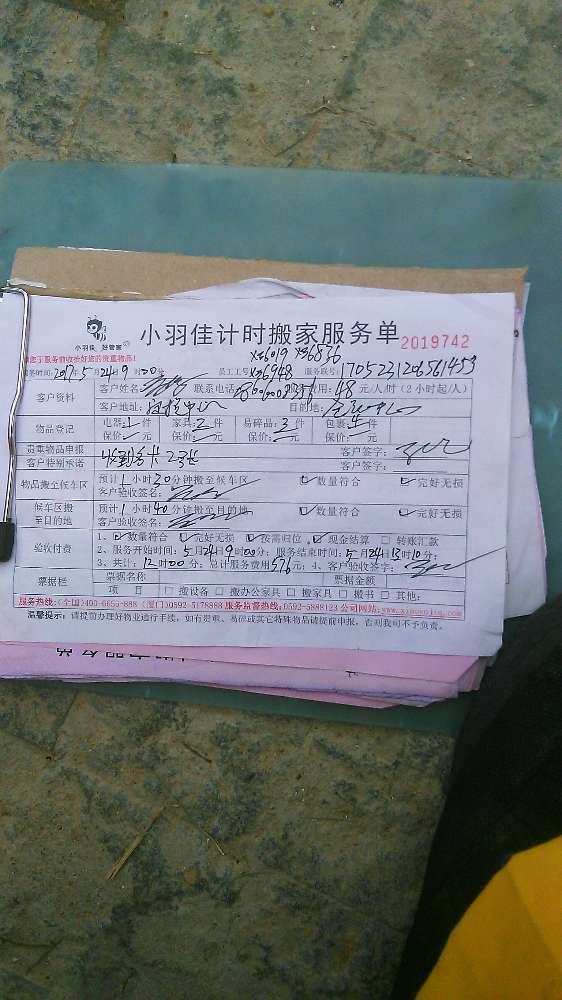 小羽佳 好管家
小羽佳计时搬家服务单 2019742
X36019 X36836
服务前收拾好您的贵重物品！
务时间：2017年5月24日9时00分 员工工号 X36948 服务联号：1705231206561453
客户资料 客户姓名 联系电话 费用：48元/人/时（2小时起/人）
客户地址： 目的地：
物品登记 电器 1 件 家具 2 件 易碎品：3 件 包裹 件
保价： 元 保价： 元 保价： 元 保价： 元
贵重物品申报 客户签字：
客户特别承诺 客户签字：
物品搬至候车区 预计1小时30分钟搬至候车区 数量符合 完好无损
客户验收签名：
候车区搬至目的地 预计1小时40分钟搬至目的地 数量符合 完好无损
客户验收签名：
验收付费 1、数量符合 完好无损 按需归位， 现金结算 转账汇款
2、服务开始时间：5月24日9时00分；服务结束时间：5月24日13时10分；
3、共计：12时00分；总计服务费用576元；4、客户验收签字：
票据栏 票据名称 票据金额
项 目 搬设备 搬办公家具 搬家具 搬书 其他：
服务热线：(全国)400-6655-888 (厦门)0592-5178988 服务监督热线：0592-5888123 公司网站：www.xiaoyujia.com
温馨提示：请提前办理好物业通行手续，如有贵重、易碎或其它特殊物品请提前申报，否则公司不予负责。